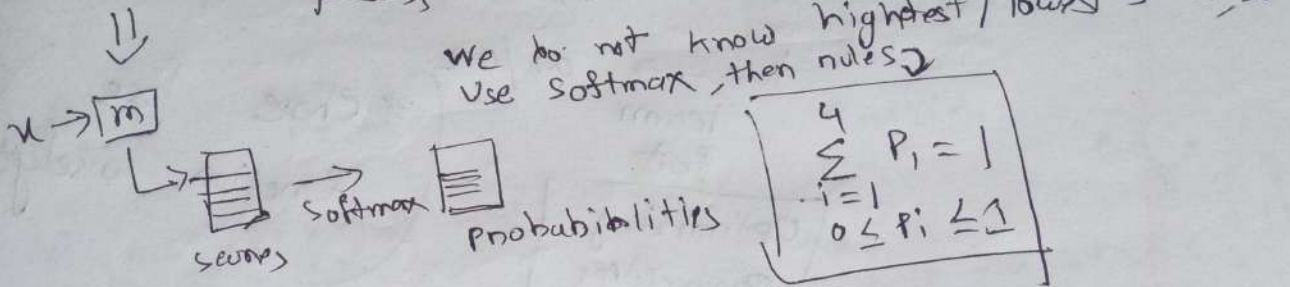 We do not know highetest /
Use Softmax, then rules
x → m
scores
softmax
Probabibalities
4
Σ P, = 1
i=1
0 ≤ Pi ≤ 1